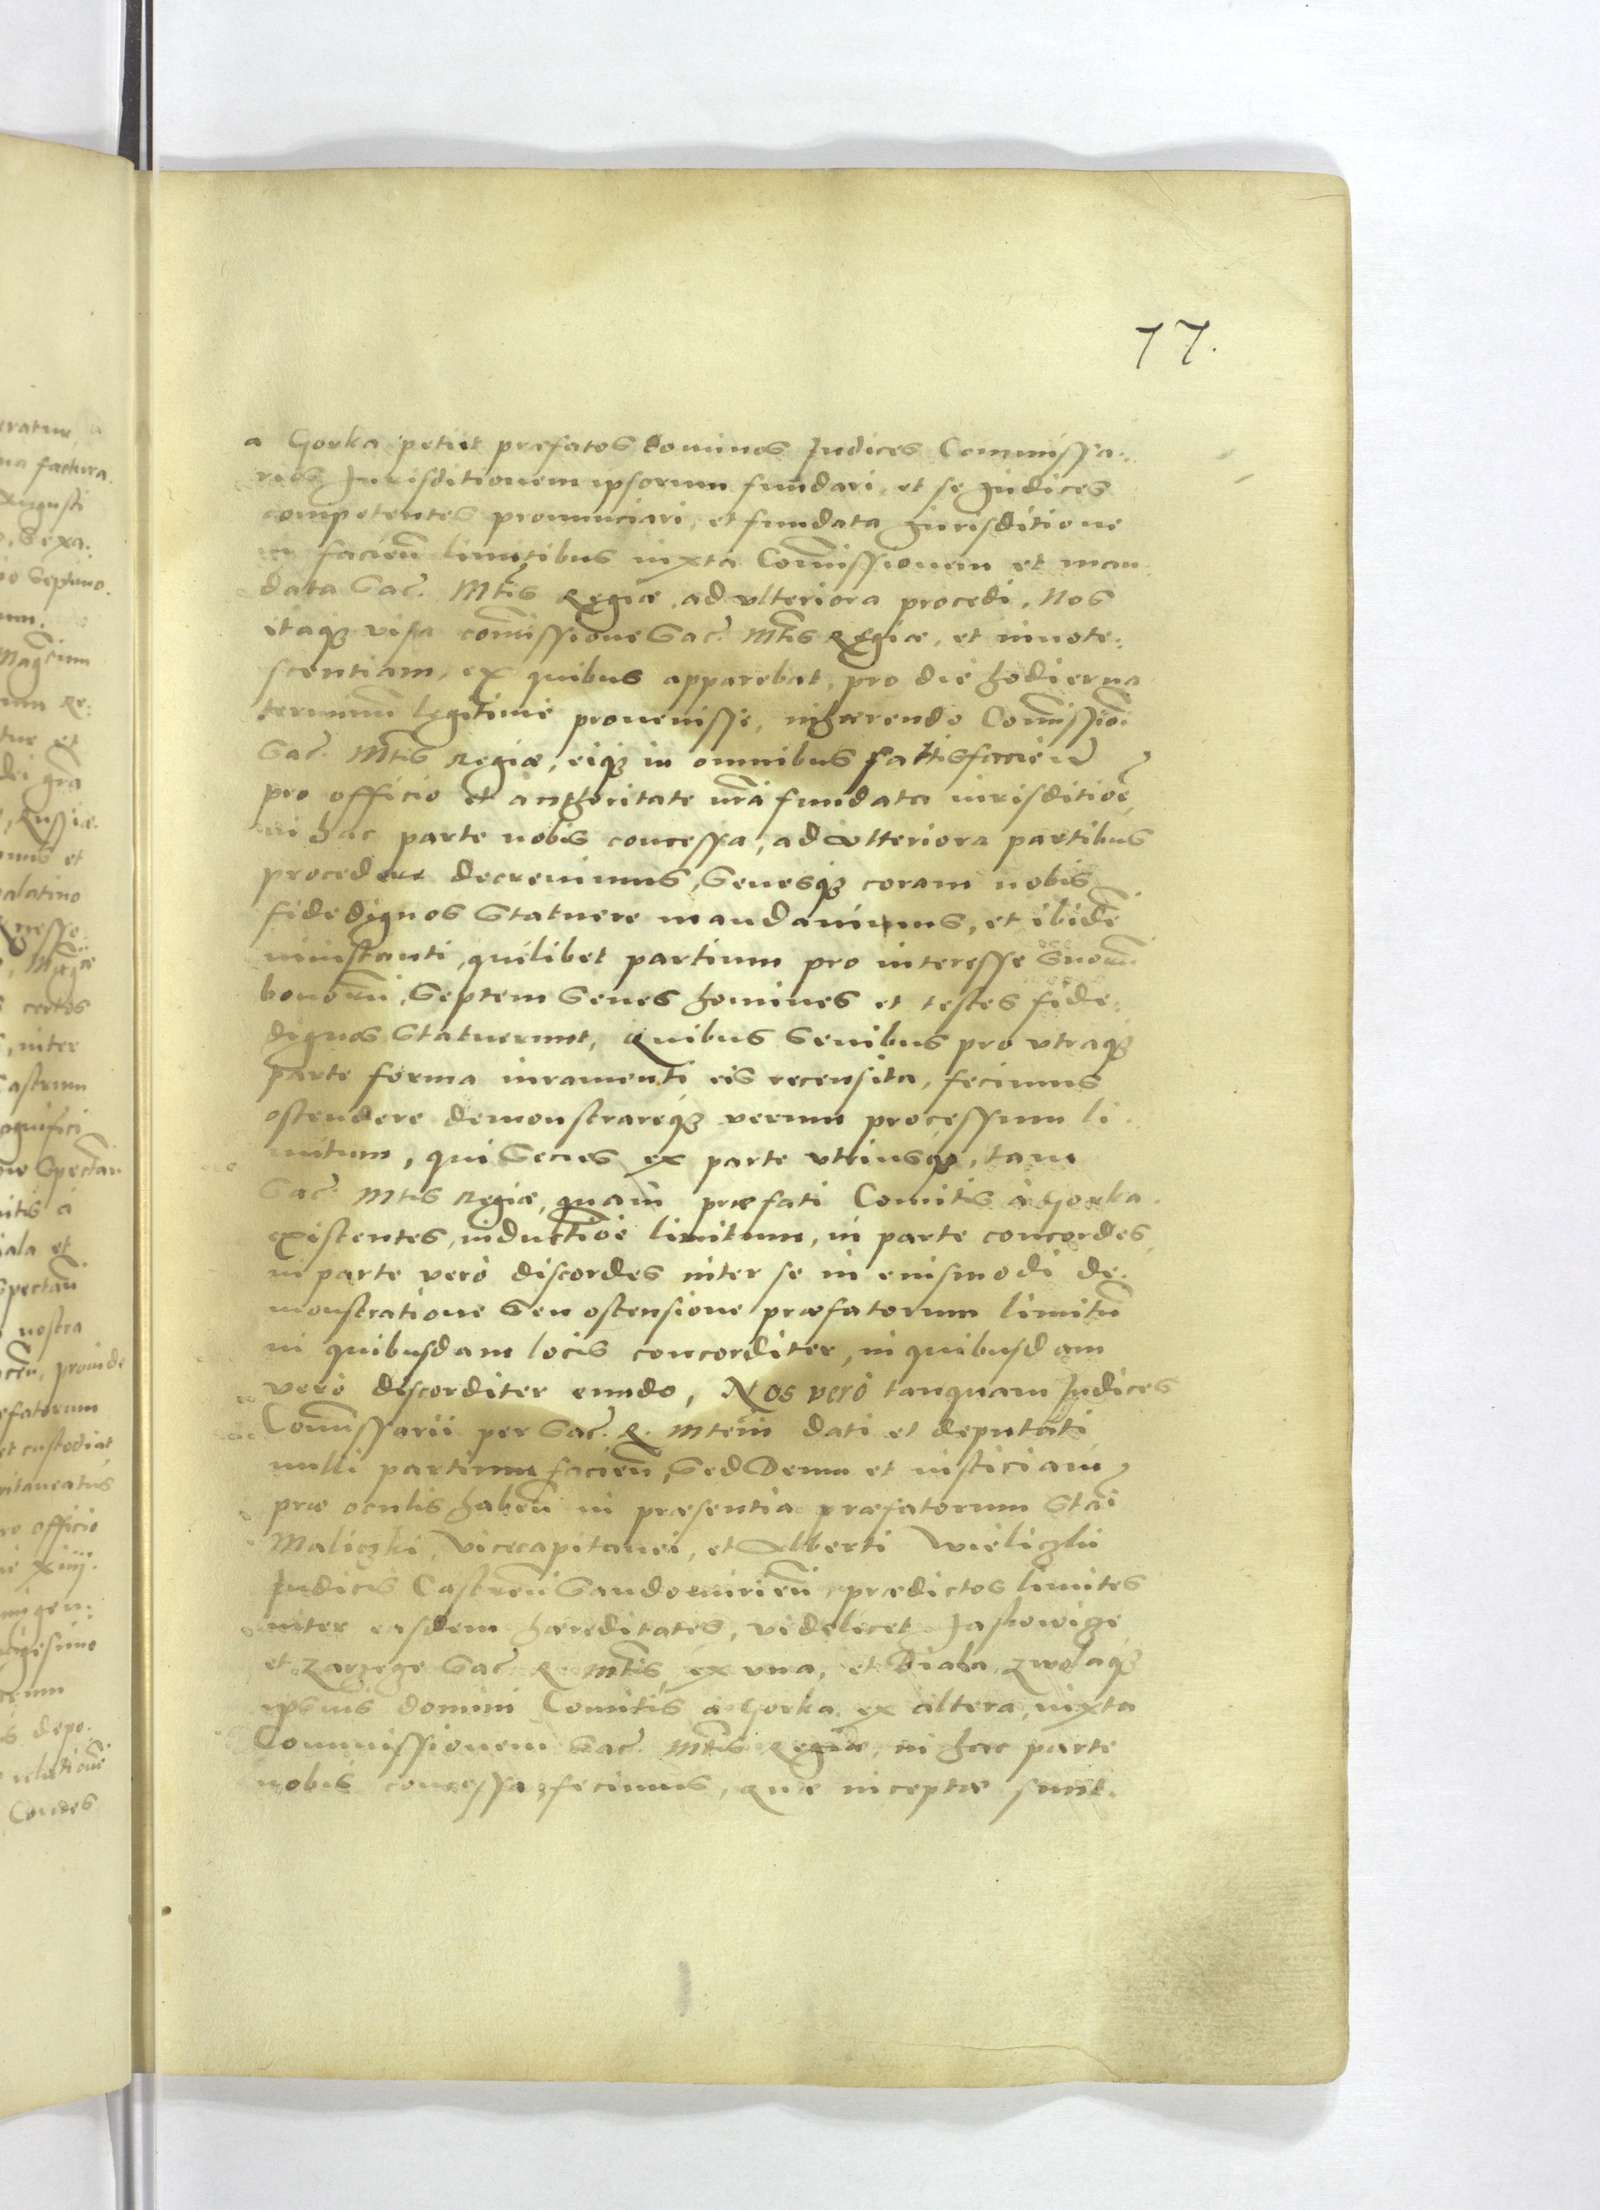 77.
a Gorka petiit præfatos dominos Judices Commissa:
rios Jurisditionem ipsorum fundari, et se Judices
competentes pronunciari, et fundata Jurisditione
in facieñ limitibus iuxta Com̃issionem et man
data Sac. Mt̃is Regiæ, ad vlteriora procedi, Nos
itaqȝ visa com̃issione Sac. Mt̃is Regiæ, et innote:
scentiam, ex quibus apparebat, pro die hodierna
terminũ legitime prouenisse, inhærendo Com̃issiõi
Sac. Mt̃is Regiæ, eiqȝ in omnibus sattisfacieñ
pro officio et authoritate nr̃a fundata iurisditiõe
in hac parte nobis concessa, ad vlteriora partibus
procedere decreuimus, Senesqȝ coram nobis
fidedignos Statuere mandauimus, et ibidẽ
ininstanti, quilibet partium pro interesse Suorũ
bonorũ, Septem Senes homines et testes fide:
dignos Statuerunt, Quibus Senibus pro vtraqȝ
parte forma iuramenti eis recensita, fecimus
ostendere demonstrareqȝ verum processum li
mitum, qui Senes ex parte vtriusqȝ, tam
Sac. Mtis Regiæ, quam præfati Comitis à Gorka
existentes, inductiõe limitum, in parte concordes,
in parte verò discordes inter se in eiusmodi de:
monstratione Seu ostensione præfatorum limitũ
in quibusdam locis concorditer, in quibusdam
verò discorditer eundo, Nos verò tanquam Judices
Com̃issarii per Sac. R. Mtem dati et deputati
nulli partium facieñ, Sed Deum et iusticiam
præ oculis habeñ in præsentia præfatorum Stañi
Maliczki, Vicecapitanei, et Alberti Wieliczki
Judicis Castreñ Sandomirieñ prædictos limites
inter easdem hæreditates, videlicet Jastrowicze
et Zarzecze Sac. R. Mt̃is, ex vna, et Biala, zwolaqȝ
ipsius domini Comitis à Gorka ex altera, iuxta
Commissionem Sac. Mt̃is Regiæ, in hac parte
nobis concessa fecimus, quæ inceptæ sunt.